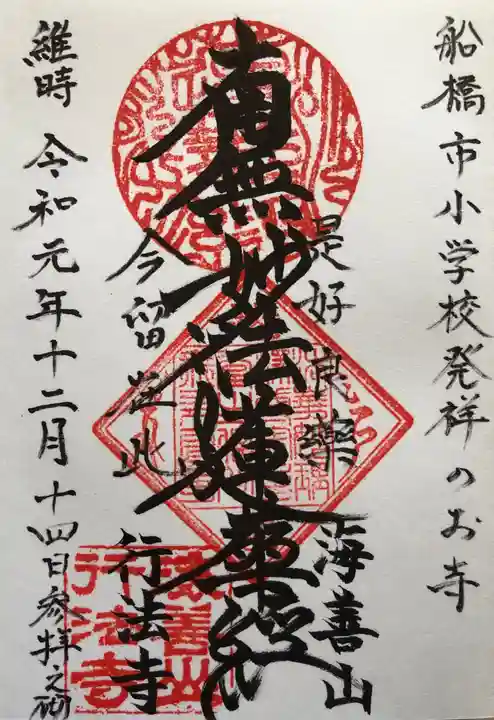 船橋市小学校発祥のお寺
是好良薬
海善山
南無妙法蓮華経
今留在此
行法寺
維時 令和元年十二月十四日参拝之砌
海善山
行法寺